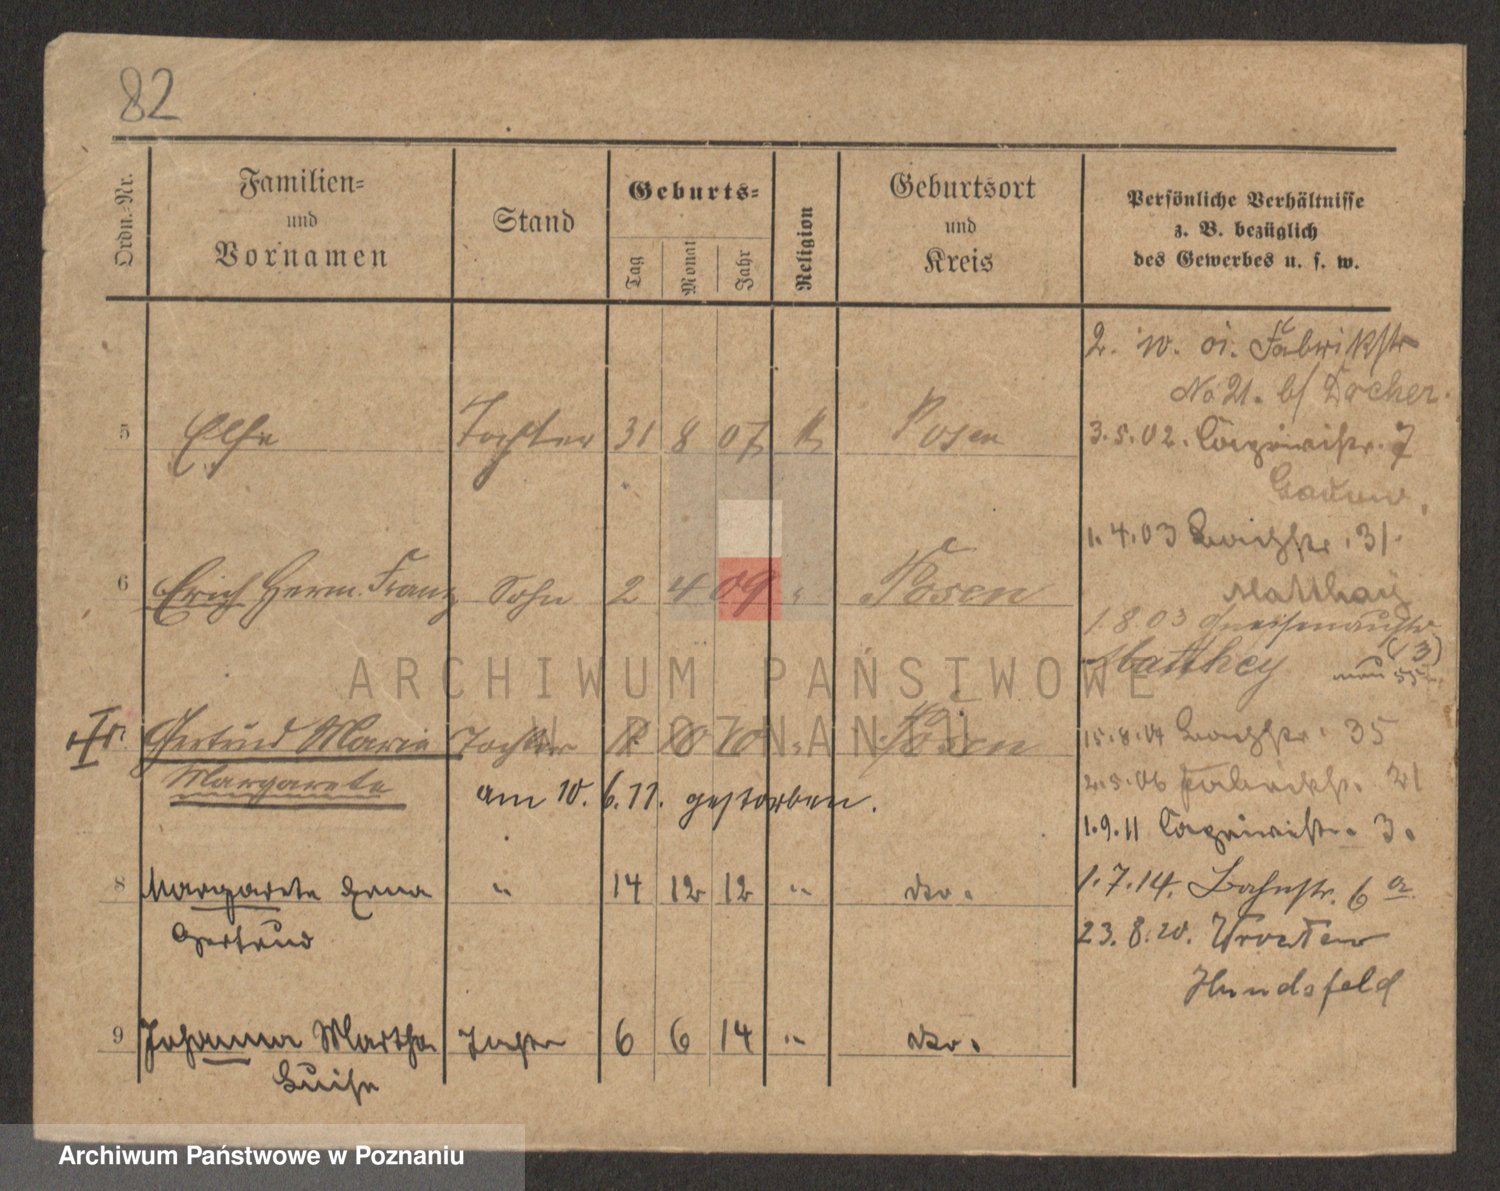 82
Ordn.-Nr.
Familien-
und
Vornamen
Stand
Geburts-
Tag
Monat
Jahr
Religion
Geburtsort
und
Kreis
Persönliche Verhältnisse
z. B. bezüglich
des Gewerbes u. s. w.
2. 10. 01. Fabrikstr
No 21. b/ Docher.
5 Else Tochter 31 8 07 Posen
3.5.02.
1.4.03 31.
6 Erich Herm. Franz Sohn 2 4 09 " Posen
Matthey
1.8.03 Gneisenaustr
Matthey (13)
Gertrud Maria Tochter 10 10 " Posen
15.8.04 35
Margarete
am 10. 6. 11. gestorben.
2.5.06 Fabrikstr. 21
1.9.11 3.
8 Margarete Erna " 14 12 12 " do.
Gertrud
1.7.14. Bahnstr. 6 a
23.8.20.
Hundsfeld
9 Johanna Martha Tochter 6 6 14 " do.
Luise
ARCHIWUM PAŃSTWOWE
W POZNANIU
Archiwum Państwowe w Poznaniu